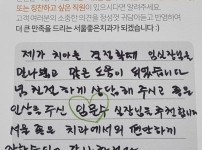 또는 칭찬하고 싶은 직원이 있으시다면 알려주세요.
고객 여러분의 소중한 의견을 소중히 귀담아듣고 반영하여
더 큰 만족을 드리는 서울좋은치과가 되겠습니다 :)
제가 치아를 결정할때 임실장님을
만나 많은 도움이 되었습니다
넘 친절하게 상담해 주시고 좋은
인상을 주신 임은수 실장님을 추천합니다
서울 좋은 치과에서의 편안하게